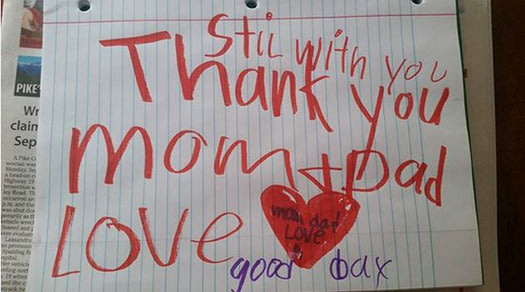 Stil with you
Thank you
mom + Dad
LOVE
mom dad
LOVE
good bax
PIKE'
Wr
claim
Sep